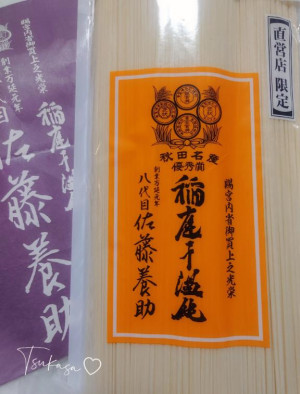 直営店 限定
秋田名産
優秀賞
賜宮内省御買上之光栄
稲庭干温飩
創業万延元年
八代目佐藤養助
宮内省御買上之光栄
稲庭干温飩
創業万延元年
佐藤養助
Tsukasa♡